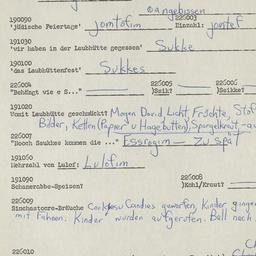 ⊗angebissen
190090 225003
'jüdische Feiertage' jomtofim Einzahl: jontef
191030
'wir haben in der Laubhütte gegessen' Sukke
190100
'das Laubhüttenfest' Sukkes
226004 226005 226006
"Behängt wie e S..." )Seik? )Seikes?
191020
Womit Laubhütte geschmückt? Mogen David, Licht, Früchte, Stof
Bilder, Ketten (Papier u Hagebutten), Spargelkraut,
226007
"Booch Ssukkes kommen die ..." Essrogim — zu spät
191060
Mehrzahl von Lulof: Lulofim
191090 226008
Schanerobbe-Speisen? )Kohl/Kraut?
226009
Simchastore-Bräuche Candies geworfen, Kinder gingen
mit Fahnen. Kinder wurden aufgerufen. Ball noch
226010